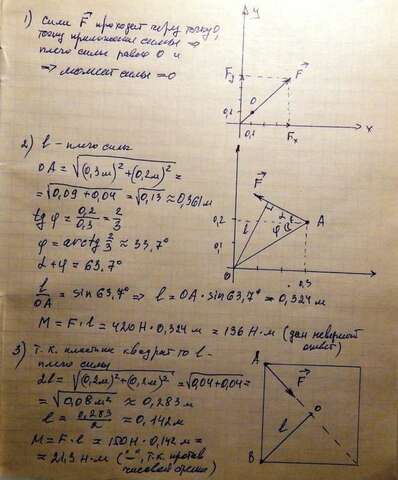 1) Сила F⃗ проходит через точку O,
точку приложения силы ⇒
плечо силы равно 0 и
⇒ момент силы = 0
y
Fy
F⃗
0,2
O
0,1
Fx
x
2) l - плечо силы
OA = √((0,3м)² + (0,2м)²) =
= √(0,09 + 0,04) = √0,13 ≈ 0,361 м
tg φ = 0,2/0,3 = 2/3
φ = arctg 2/3 ≈ 33,7°
α + φ = 63,7°
l/OA = sin 63,7° ⇒ l = OA · sin 63,7° = 0,324 м
M = F · l = 420 Н · 0,324 м = 136 Н·м (дан неверный
ответ)
F⃗
α
0,2
A
φ
l
0,1
O
0,3
3) Т.к. пластина квадрат то l -
плечо силы
2l = √((0,2м)² + (0,2м)²) = √(0,04 + 0,04) =
= √0,08м² ≈ 0,283 м
l = 0,283/2 ≈ 0,142 м
M = F · l = 150 Н · 0,142 м =
≈ 21,3 Н·м ("–", т.к. против
часовой стрелки)
A
F⃗
O
l
B